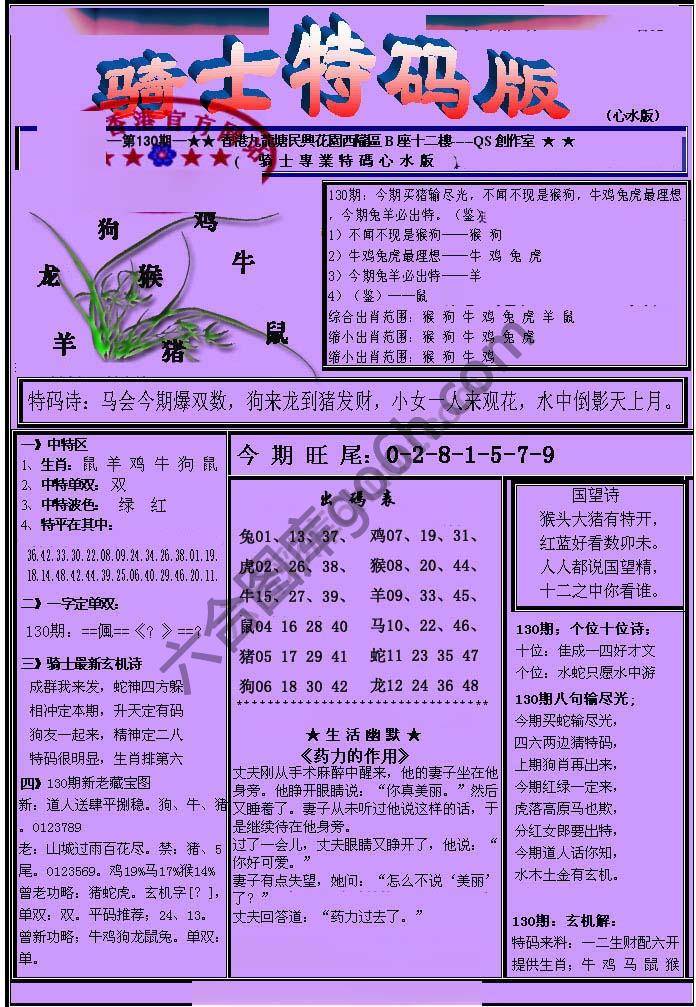 骑士特码版
(心水版)
香港官方网站
第130期—★★ 香港九龍塘民興花園西福區 B 座十二樓---QS創作室 ★ ★
( 骑士專業特碼心水版 )
狗 鸡
龙 猴 牛
羊 猪 鼠
130期：今期买猪输尽光，不闻不现是猴狗，牛鸡兔虎最理想
，今期兔羊必出特。（鉴）
1）不闻不现是猴狗——猴 狗
2）牛鸡兔虎最理想——牛 鸡 兔 虎
3）今期兔羊必出特——羊
4）（鉴）——鼠
综合出肖范围：猴 狗 牛 鸡 兔 虎 羊 鼠
缩小出肖范围：猴 狗 牛 鸡 兔 虎
缩小出肖范围：猴 狗 牛 鸡
特码诗：马会今期爆双数，狗来龙到猪发财，小女一人来观花，水中倒影天上月。
一》中特区
1、生肖：鼠 羊 鸡 牛 狗 鼠
2、中特单双：双
3、中特波色： 绿 红
4、特平在其中：
36.42.33.30.22.08.09.24.34.26.38.01.19.
18.14.48.42.44.39.25.06.40.29.46.20.11.
二》一字定单双：
130期：==佩==《？》==？
三》骑士最新玄机诗
成群我来发，蛇神四方躲
相冲定本期，升天定有码
狗友一起来，精神定二八
特码很明显，生肖排第六
四》130期新老藏宝图
新：道人送肆平捌稳。狗、牛、猪
。0123789
老：山城过雨百花尽。禁：猪、5
尾。0123569。鸡19%马17%猴14%
曾老功略：猪蛇虎。玄机字[？]，
单双：双。平码推荐；24、13。
曾新功略；牛鸡狗龙鼠兔。单双：
单。
今 期 旺 尾：0-2-8-1-5-7-9
出 碼 表
兔01、13、37、 鸡07、19、31、
虎02、26、38、 猴08、20、44、
牛15、27、39、 羊09、33、45、
鼠04 16 28 40 马10、22、46、
猪05 17 29 41 蛇11 23 35 47
狗06 18 30 42 龙12 24 36 48
★ 生 活 幽 默 ★
《药力的作用》
丈夫刚从手术麻醉中醒来，他的妻子坐在他
身旁。他睁开眼睛说：“你真美丽。”然后
又睡着了。妻子从未听过他说这样的话，于
是继续待在他身旁。
过了一会儿，丈夫眼睛又睁开了，他说：“
你好可爱。”
妻子有点失望，她问：“怎么不说‘美丽’
了？”
丈夫回答道：“药力过去了。”
国望诗
猴头大猪有特开，
红蓝好看数卯未。
人人都说国望精，
十二之中你看谁。
130期；个位十位诗；
十位：佳成一四好才文
个位：水蛇只愿水中游
130期八句输尽光；
今期买蛇输尽光，
四六两边猜特码，
上期狗肖再出来，
今期红绿一定来，
虎落高原马也欺，
分红女郎要出特，
今期道人话你知，
水木土金有玄机。
130期：玄机解：
特码来料：一二生财配六开
提供生肖；牛 鸡 马 鼠 猴
六合图库go6h.com